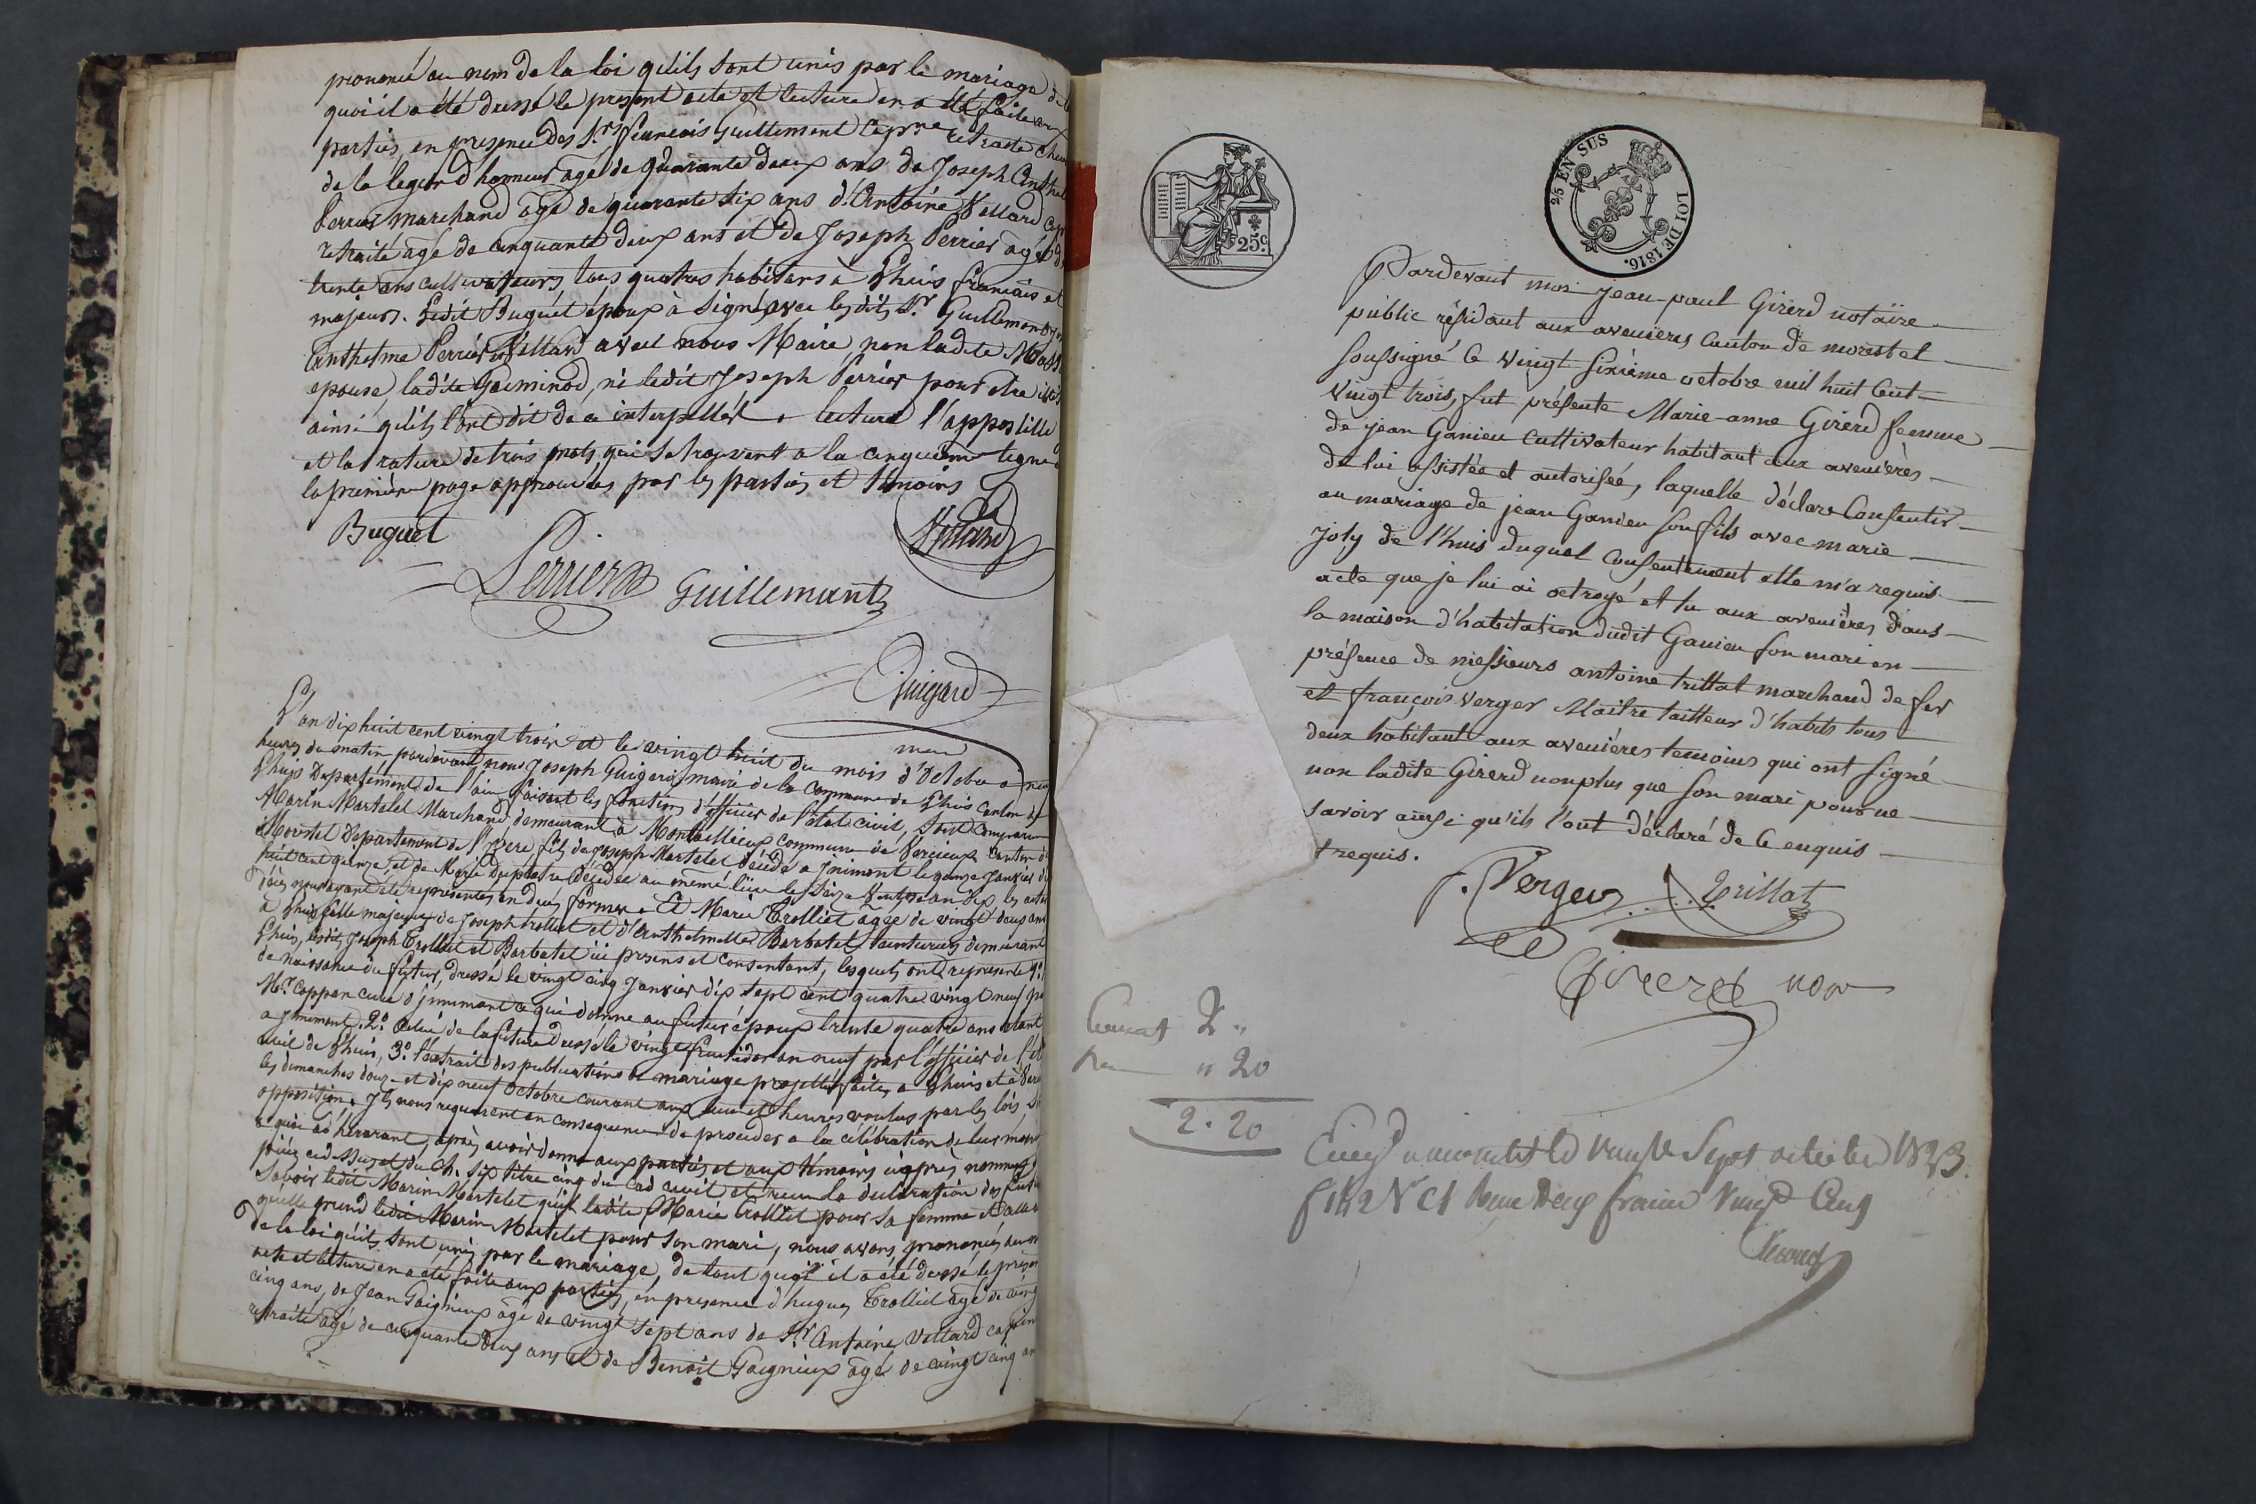 prononcé au nom de la loi qu'ils sont unis par le mariage de
quoi il a été dressé le present acte et lecture en a été faite aux
parties, en presence des Srs francois Guillemant Capne retraité Chev
de la legion d'honneur agé de quarante deux ans de Joseph Anthel
Perrier marchand agé de quarante six ans d'Antoine Vettard Cap
retraité agé de cinquante deux ans et de Joseph Perrier agé de
trente ans cultivateurs tous quatres habitans à Lhuis francais et
majeurs. Ledit Buguet époux à signé avec lesdits Sr Guillemant
Anthelme Perrier Vettard avec nous Maire non ladite
epouse, ladite Gueminod, ni ledit Joseph Perrier pour etre
ainsi qu'ils l'ont dit de ce interpellés + lecture l'appostille
et la rature de trois mots qui se trouvent a la cinquieme ligne
la premiere page approuvées par les parties et témoins
Buguet
Perrier Guillemant
Guigard
L'an dix huit cent vingt trois et le vingt huit du mois d'Octobre a neuf
heures du matin, pardevant nous Joseph Guigard, maire de la Commune de Lhuis Canton de
Lhuis Departement de l'ain faisant les fonctions d'officier de l'état civil, sont comparus
Marin Martelet Marchand demeurant à Montallieux commune de Vercieux Canton de
Morestel Departement de l'Isère fils de Joseph Martelet décédé a Jnimont le onze Janvier dix
huit cent quinze, et de Marie Dupatre Décédée au même lieu le seize Ventose an dix, les actes
décés nous ayant été representés en dues formes. Et Marie Trolliet agée de vingt deux ans
à Lhuis fille majeure de Joseph trolliet et d'Anthelmette Barbatet demeurant
Lhuis, lesdits Joseph Trolliet et Barbatet ici presens et consentant, lesquels ont representé 1º
de naissance du futur, dressé le vingt cinq Janvier dix sept cent quatre vingt neuf par
Mr Coppan curé d'Jnnimont ce qui donne au futur époux trente quatre ans étant
a Jnnimont. 2º Celui de la future dressé le vingt fructidor an neuf par l'officier de l'ét
civil de Lhuis, 3º l'extrait des publications de mariage projetté faites a Lhuis et à Ver
les dimanches douze et dix neuf octobre courant aux lieu et heures voulus par les lois,
opposition. Ils nous requierent en consequence de proceder a la célébration de leur mari
a quoi adhérerant, après avoir donné aux parties et aux témoins ci après nommés
pieces ci dessus et du Ch. six titre cinq du Cod civil et recu la déclaration des futurs
Savoir ledit Marin Martelet qu'il ladite Marie Trolliet pour sa femme et
qu'elle prend ledit Marin Martelet pour son mari, nous avons prononcés au
de la loi qu'ils sont unis par le mariage, de tout quoi il a été dressé le présent
acte et lecture en a été faite aux parties, en presence d'hugues Trolliet agé de
cinq ans, de Jean Gaigneux agé de vingt sept ans de Sr Antoine Vettard capne
retraité agé de cinquante deux ans et de Benoit Gaigneux agé de vingt cinq ans
25 c.
25 EN SUS
LOI DE 1816.
Pardevant moi jean-paul Girerd notaire
public résidant aux avenieres canton de morestel
soussigné le vingt sixième octobre mil huit cent
vingt trois, fut présente Marie-anne Girerd femme
de jean Ganieu cultivateur habitant aux avenières
de lui assistée et autorisée, laquelle déclare consentir
au mariage de jean Ganieu son fils avec marie
joly de l'huis duquel consentement elle m'a requis
acte que je lui ai octroyé et lu aux avenières dans
la maison d'habitation dudit Ganieu son mari en
présence de messieurs antoine trillat marchand de fer
et françois verger Maitre tailleur d'habits tous
deux habitant aux avenières temoins qui ont signé
non ladite Girerd nonplus que son mari pour ne
savoir ainsi qu'ils l'ont déclaré de ce enquis
et requis.
f. Verger Trillat
Girerd nore
2 "
" 20
2 . 20
vingt Sept octobre 1823.